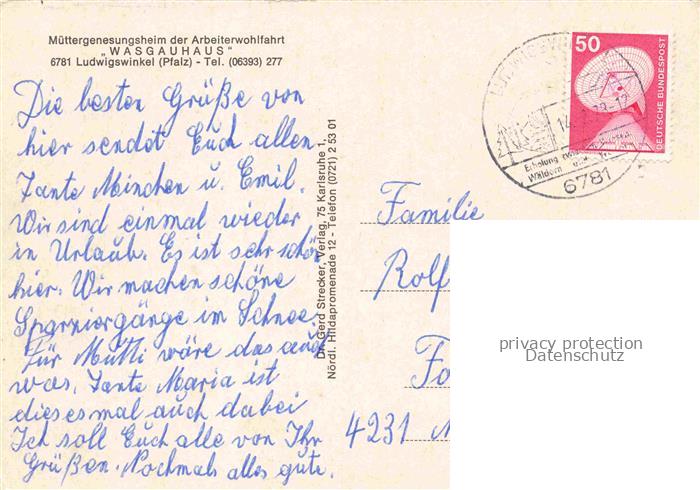 Müttergenesungsheim der Arbeiterwohlfahrt
„WASGAUHAUS"
6781 Ludwigswinkel (Pfalz) - Tel. (06393) 277
Die besten Grüße von
hier sendet Euch allen
Tante Minchen u. Emil.
Wir sind einmal wieder
in Urlaub. Es ist sehr schön
hier. Wir machen schöne
Spaziergänge im Schnee.
Für Mutti wäre das auch
was. Tante Maria ist
diesesmal auch dabei
Ich soll Euch alle von Ihr
Grüßen. Nochmals alles gute.
Dr. Gerd Strecker, Verlag, 75 Karlsruhe 1,
Nördl. Hildapromenade 12 - Telefon (0721) 2 53 01
50
DEUTSCHE BUNDESPOST
Erholung
Wäldern und
6781
Familie
Rolf
4231
privacy protection
Datenschutz